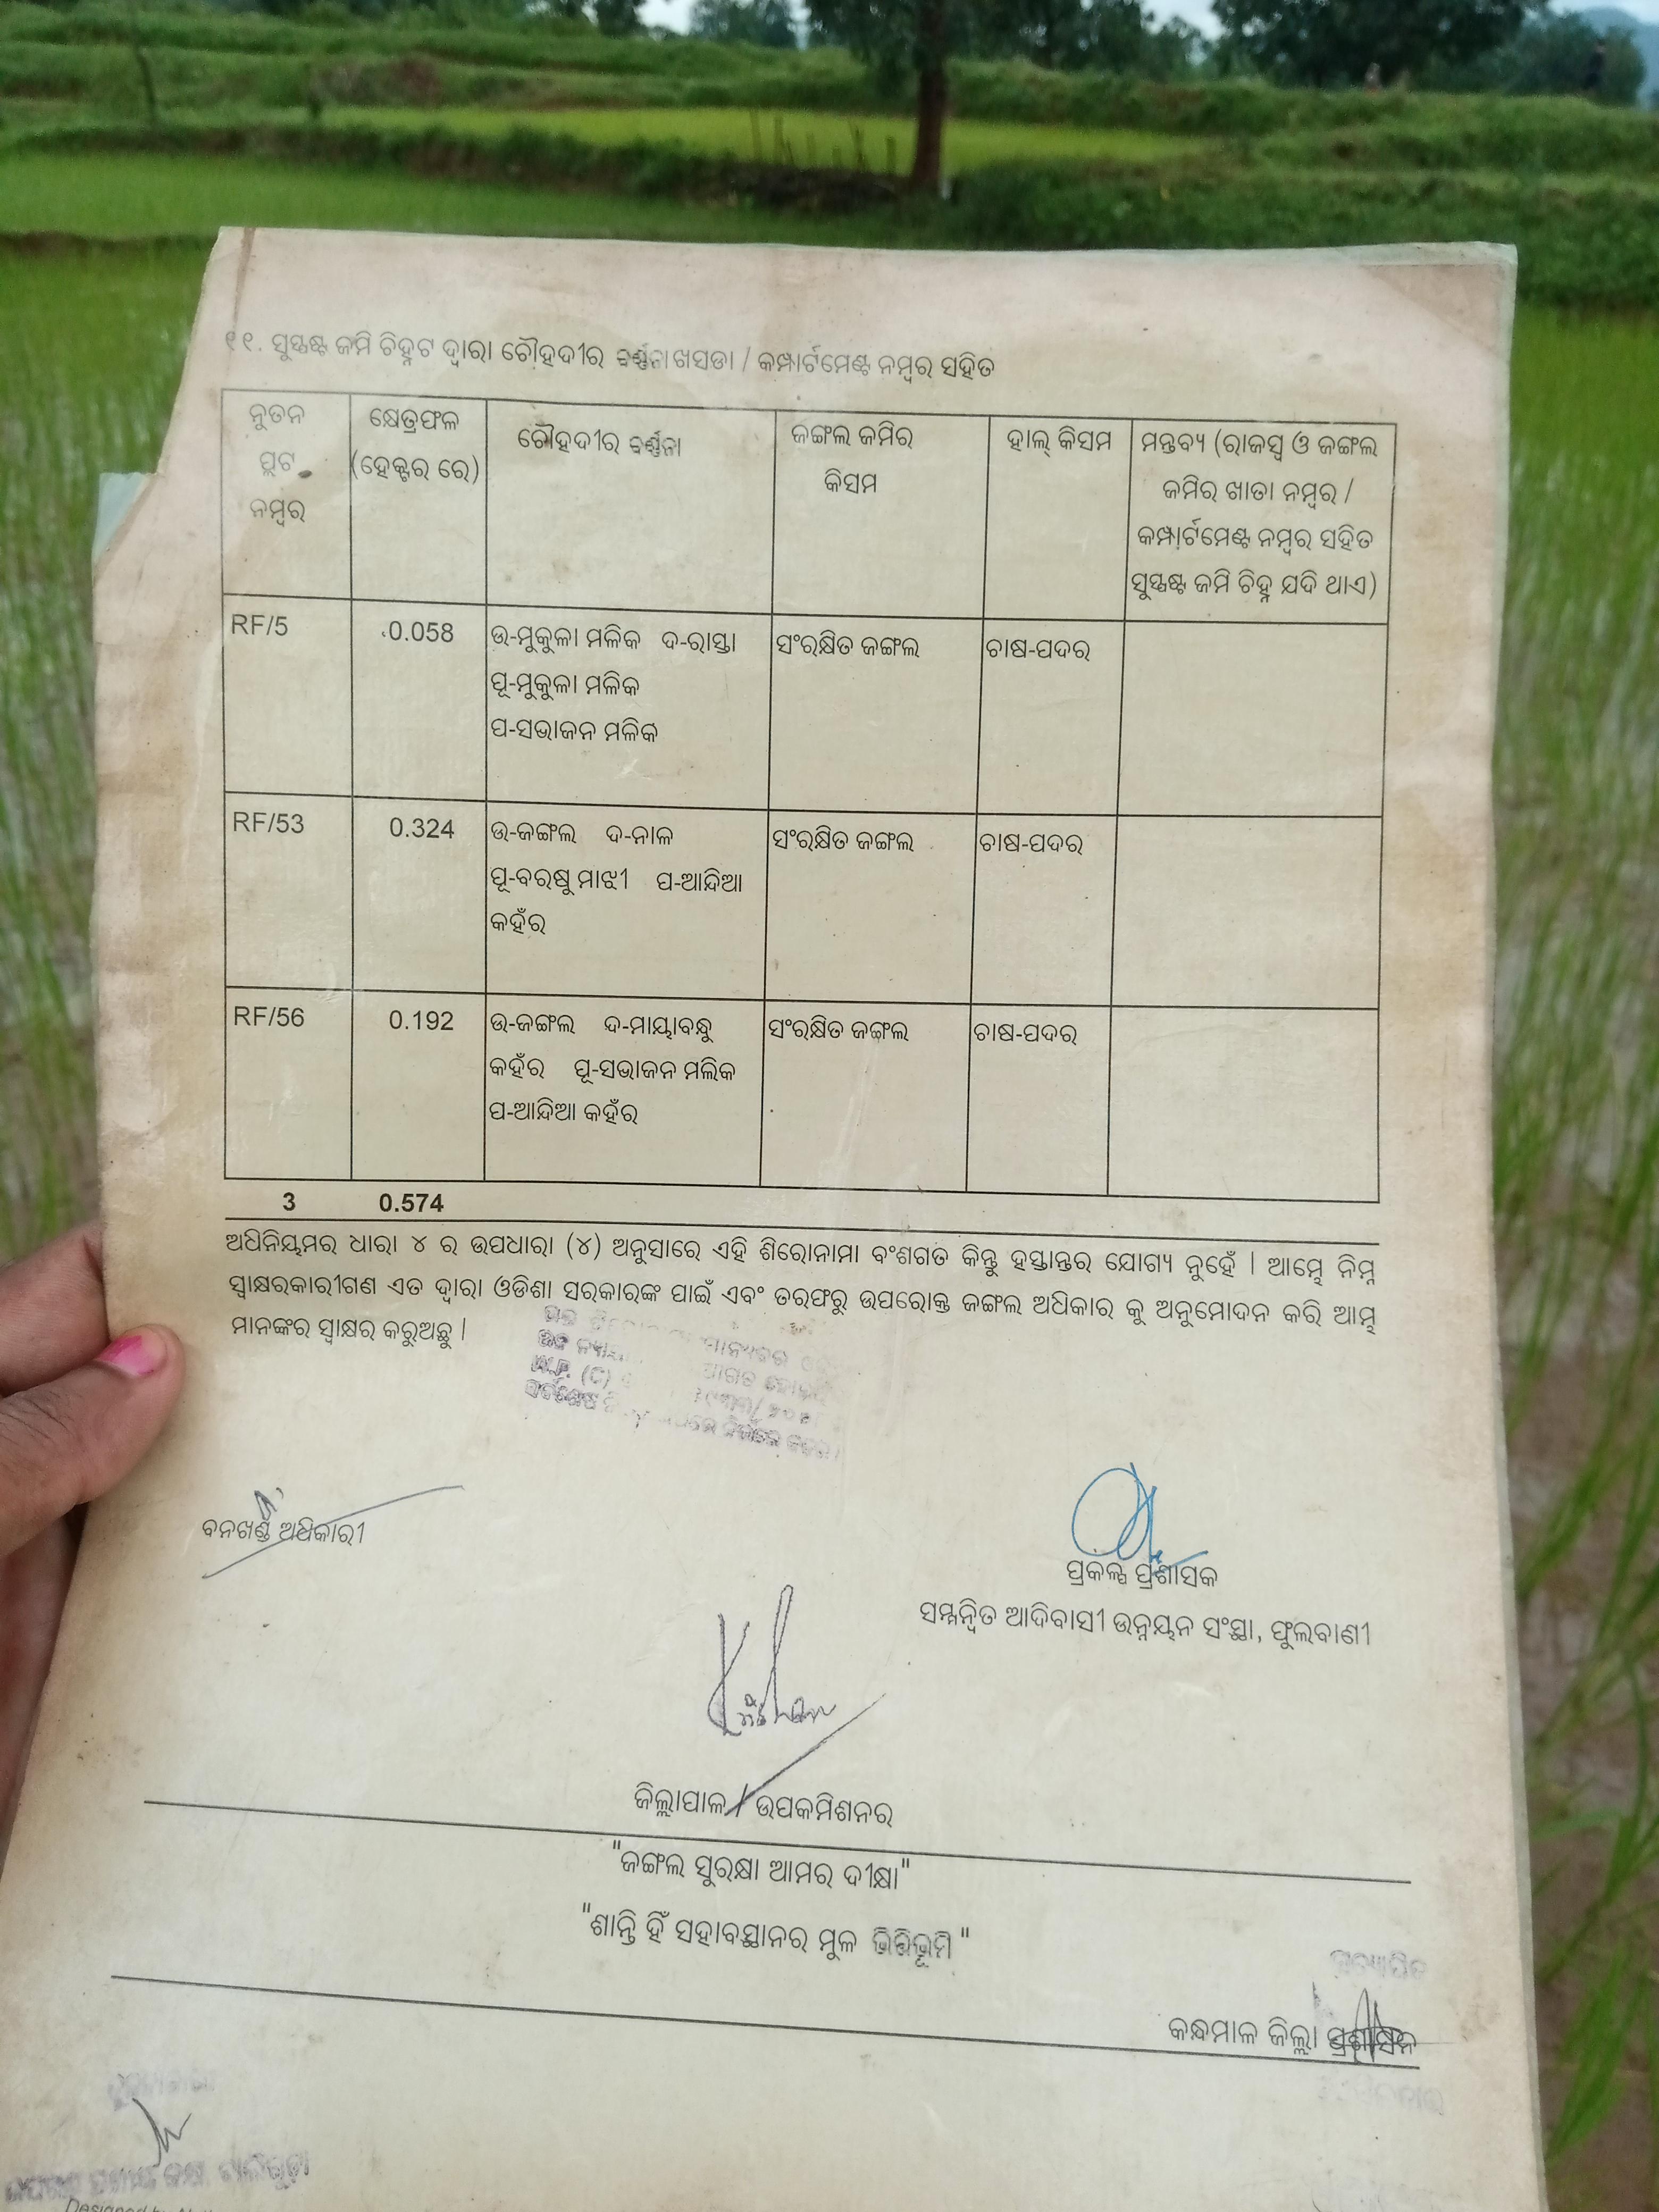 ୧୧. ସୁସ୍ପଷ୍ଟ ଜମି ଚିହ୍ନଟ ଦ୍ୱାରା ଚୌହଦୀର ବର୍ଣ୍ଣନା ଖସଡା / କମ୍ପାର୍ଟମେଣ୍ଟ ନମ୍ବର ସହିତ
ନୁତନ ପ୍ଲଟ ନମ୍ବର
କ୍ଷେତ୍ରଫଳ (ହେକ୍ଟର ରେ)
ଚୌହଦୀର ବର୍ଣ୍ଣନା
ଜଙ୍ଗଲ ଜମିର କିସମ
ହାଲ୍ କିସମ
ମନ୍ତବ୍ୟ (ରାଜସ୍ୱ ଓ ଜଙ୍ଗଲ
ଜମିର ଖାତା ନମ୍ବର /
କମ୍ପାର୍ଟମେଣ୍ଟ ନମ୍ବର ସହିତ
ସୁସ୍ପଷ୍ଟ ଜମି ଚିହ୍ନ ଯଦି ଥାଏ)
RF/5 0.058 ଉ-ମୁକୁଳା ମଳିକ ଦ-ରାସ୍ତା ସଂରକ୍ଷିତ ଜଙ୍ଗଲ ଚାଷ-ପଦର
ପୂ-ମୁକୁଳା ମଳିକ
ପ-ସଭାଜନ ମଳିକ
RF/53 0.324 ଉ-ଜଙ୍ଗଲ ଦ-ନାଳ ସଂରକ୍ଷିତ ଜଙ୍ଗଲ ଚାଷ-ପଦର
ପୂ-ବରଷୁ ମାଝୀ ପ-ଆନ୍ଦିଆ
କହଁର
RF/56 0.192 ଉ-ଜଙ୍ଗଲ ଦ-ମାୟାବନ୍ଧୁ ସଂରକ୍ଷିତ ଜଙ୍ଗଲ ଚାଷ-ପଦର
କହଁର ପୂ-ସଭାଜନ ମଲିକ
ପ-ଆନ୍ଦିଆ କହଁର
3 0.574
ଅଧିନିୟମର ଧାରା ୪ ର ଉପଧାରା (୪) ଅନୁସାରେ ଏହି ଶିରୋନାମା ବଂଶଗତ କିନ୍ତୁ ହସ୍ତାନ୍ତର ଯୋଗ୍ୟ ନୁହେଁ | ଆମ୍ଭେ ନିମ୍ନ
ସ୍ୱାକ୍ଷରକାରୀଗଣ ଏତ ଦ୍ୱାରା ଓଡିଶା ସରକାରଙ୍କ ପାଇଁ ଏବଂ ତରଫରୁ ଉପରୋକ୍ତ ଜଙ୍ଗଲ ଅଧିକାର କୁ ଅନୁମୋଦନ କରି ଆମ୍ଭ
ମାନଙ୍କର ସ୍ୱାକ୍ଷର କରୁଅଛୁ |
W.P. (C)
ବନଖଣ୍ଡ ଅଧିକାରୀ
ପ୍ରକଳ୍ପ ପ୍ରଶାସକ
ସମ୍ମନ୍ୱିତ ଆଦିବାସୀ ଉନ୍ନୟନ ସଂସ୍ଥା, ଫୁଲବାଣୀ
ଜିଲ୍ଲାପାଳ / ଉପକମିଶନର
"ଜଙ୍ଗଲ ସୁରକ୍ଷା ଆମର ଦୀକ୍ଷା"
"ଶାନ୍ତି ହିଁ ସହାବସ୍ଥାନର ମୂଳ ଭିତ୍ତିଭୂମି"
କନ୍ଧମାଳ ଜିଲ୍ଲା ପ୍ରଶାସନ
Designed by